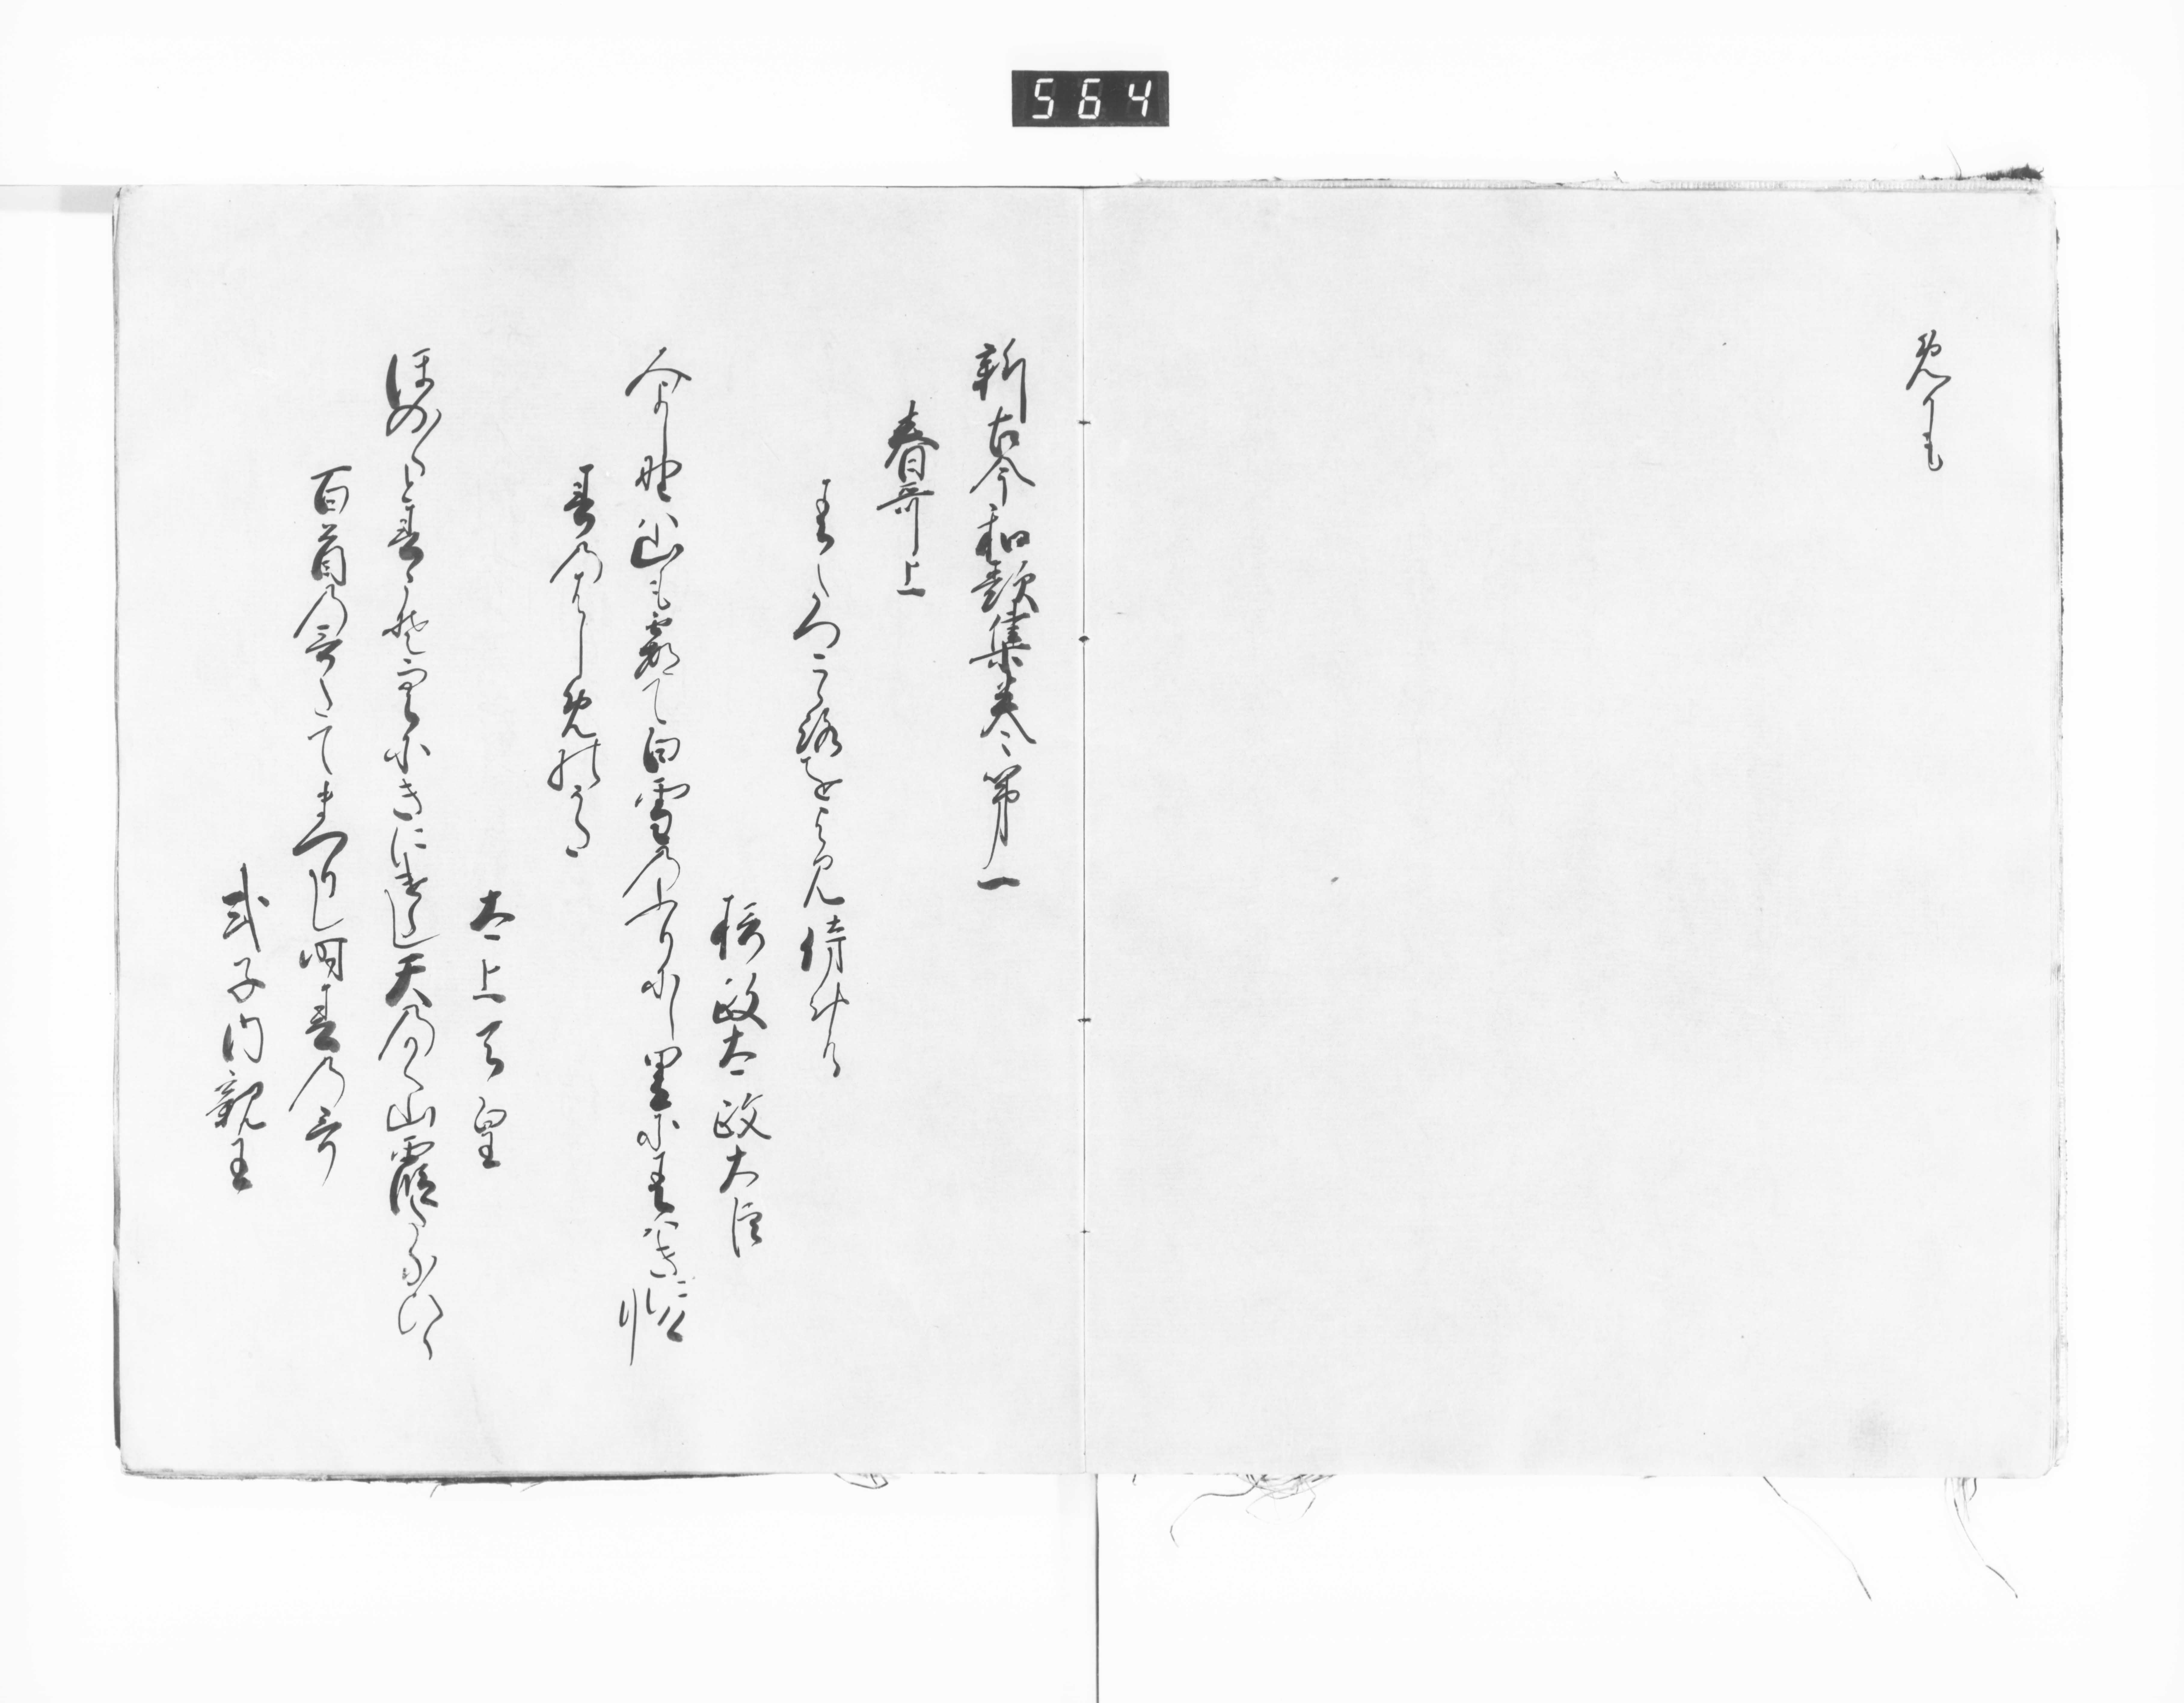 564
めりも
新古今和謌集巻第一
春哥上
春たつこゝろをよみ侍ける
摂政太政大臣
みよし野は山も霞て白雪のふりにし里に春はきにけり
春のはしめのうた
太上天皇
ほの〳〵と春こそ空にきにけらし天のかく山霞たなひく
百首の哥たてまつりし時春の哥
式子内親王